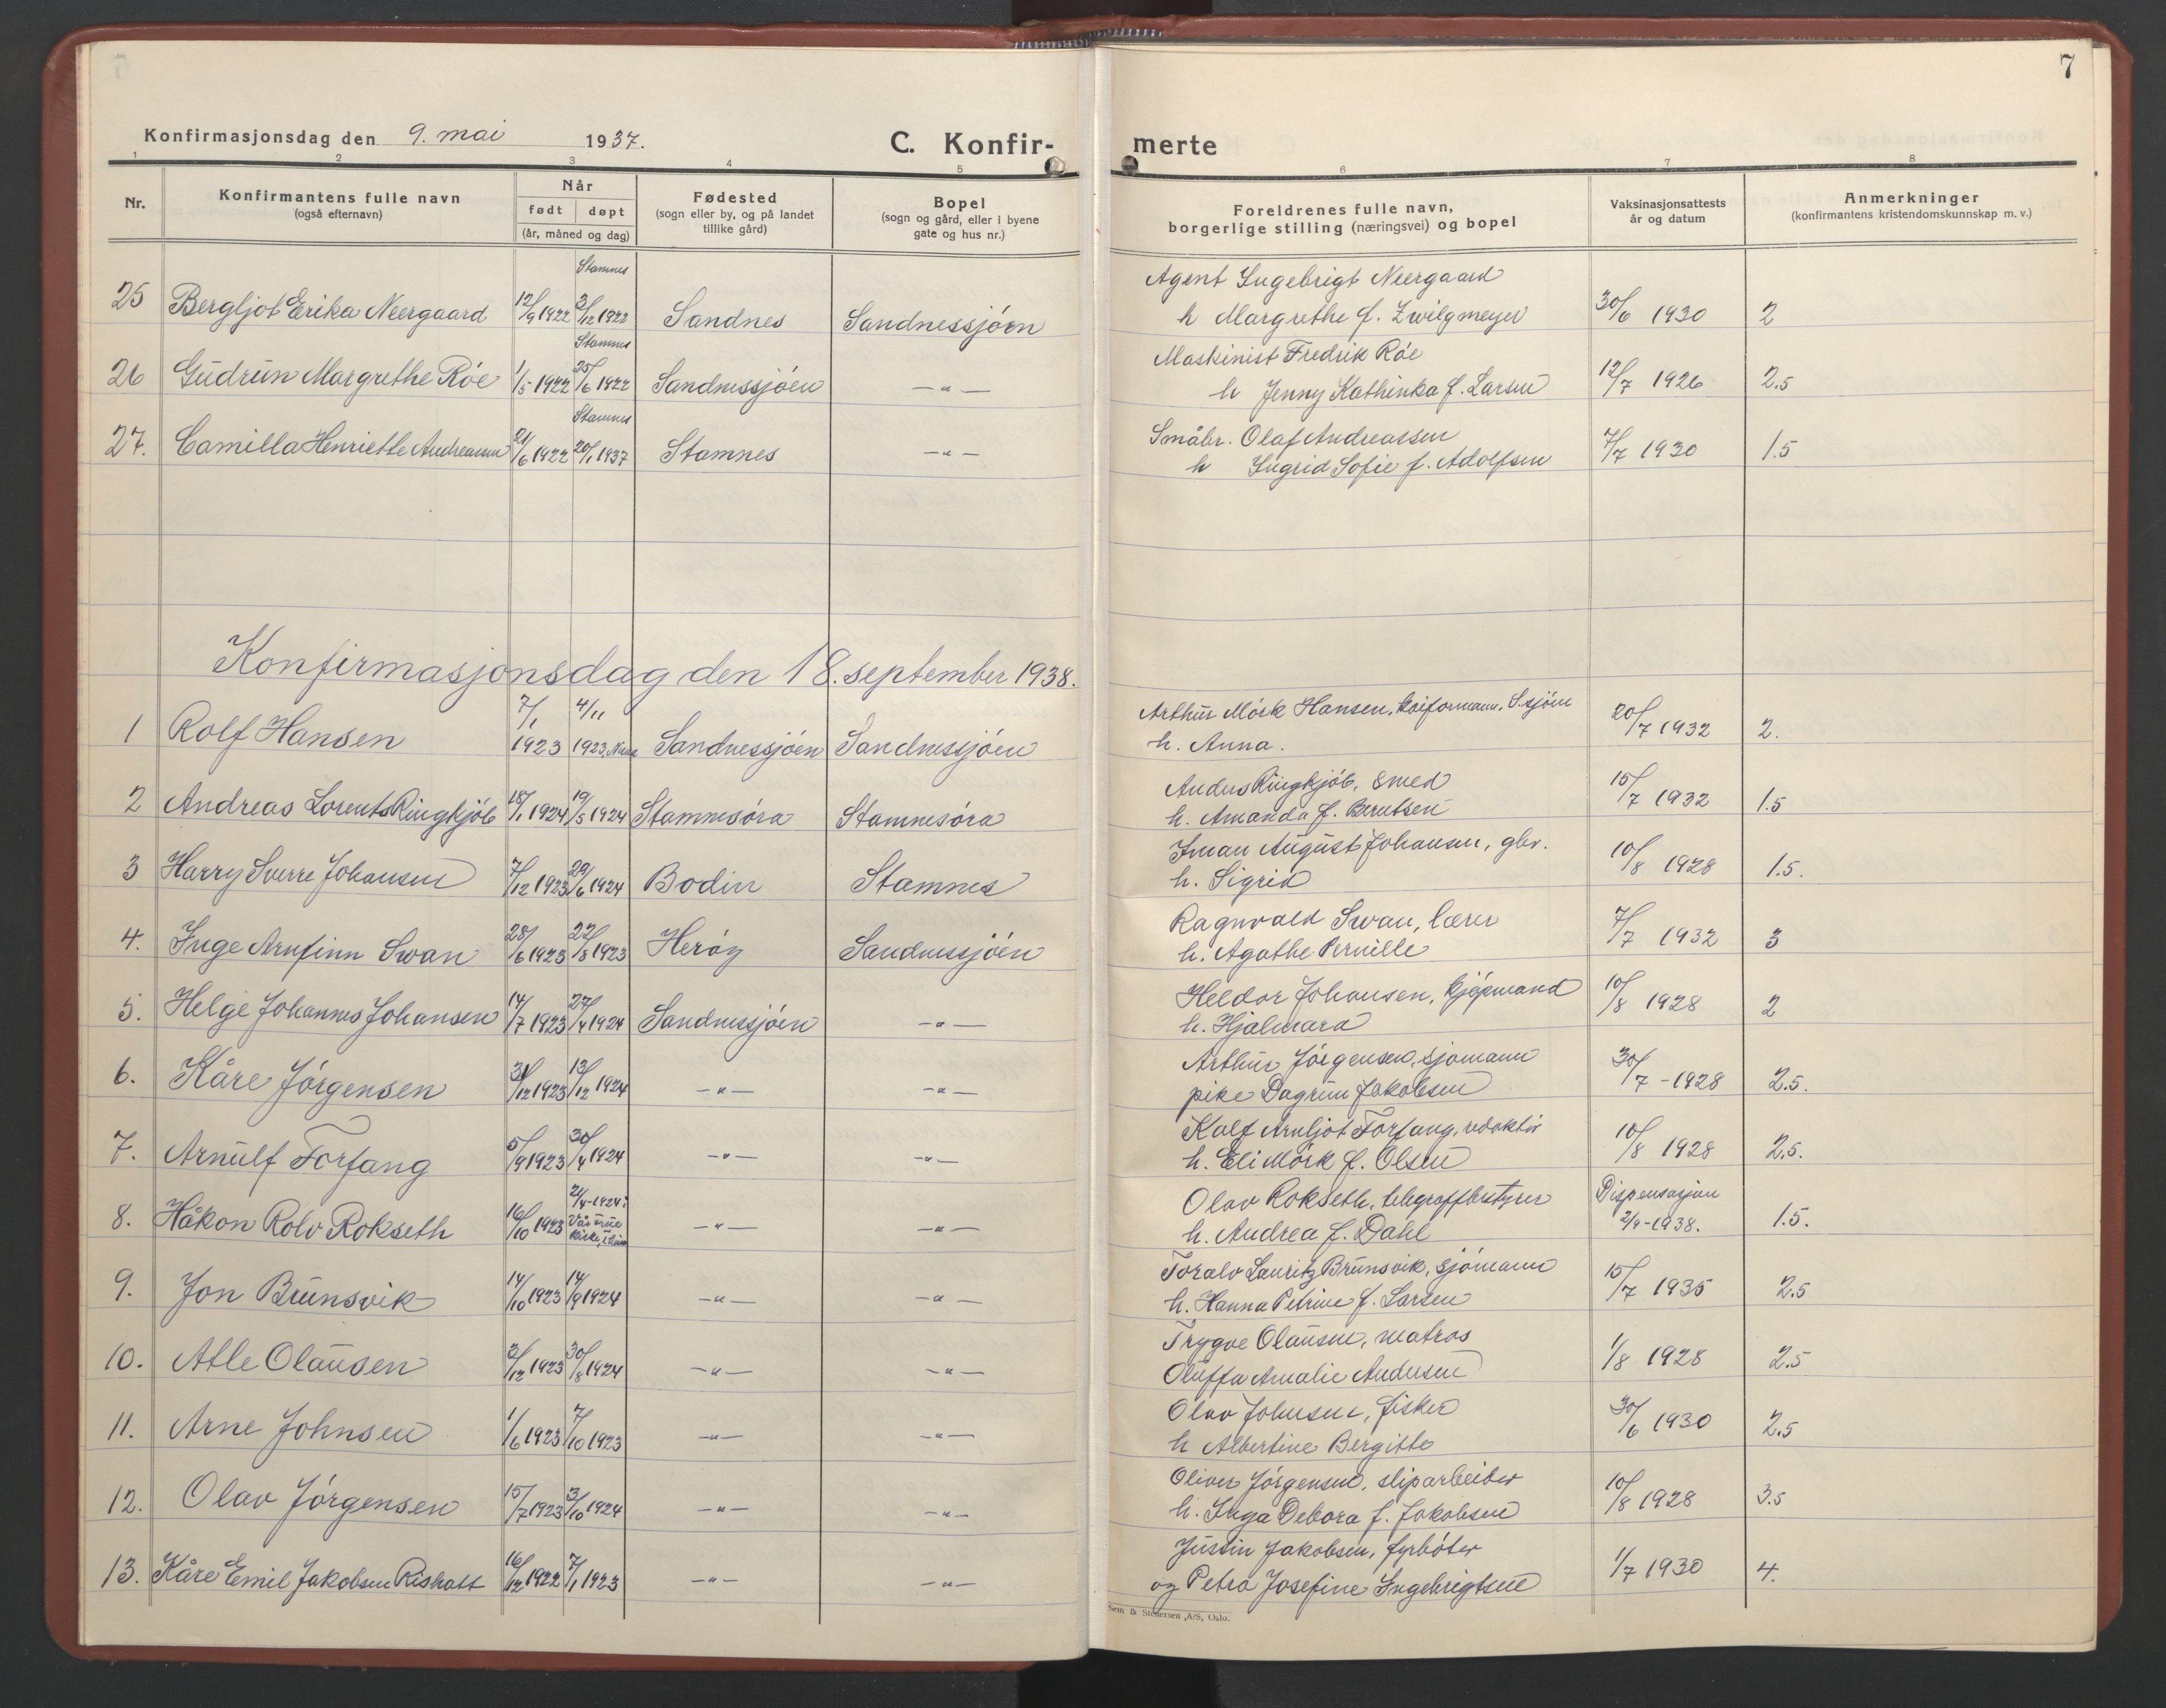 7
Konfirmasjonsdag den 9. mai 1937.
C. Konfir-
merte
1 2 3 4 5 6 7 8
Nr.
Konfirmantens fulle navn
(også efternavn)
Når
født døpt
(år, måned og dag)
Fødested
(sogn eller by, og på landet
tillike gård)
Bopel
(sogn og gård, eller i byene
gate og hus nr.)
Foreldrenes fulle navn,
borgerlige stilling (næringsvei) og bopel
Vaksinasjonsattests
år og datum
Anmerkninger
(konfirmantens kristendomskunnskap m. v.)
Stamnes
Agent Ingebrigt Neergaard
25 Bergljot Erika Neergaard 12/9 1922 3/12 1922 Sandnes Sandnessjøen h Margrethe f. Zwilgmeyer 30/6 1930 2
Stamnes
Maskinist Fredrik Røe
26 Gudrun Margrethe Røe 1/5 1922 25/6 1922 Sandnessjøen —"— h Jenny Kathinka f. Larsen 12/7 1926 2.5
Stamnes
Småbr. Olaf Andreassen
27. Camilla Henriette Andreassen 21/6 1922 20/1 1937 Stamnes —"— h Ingrid Sofie f. Adolfsen 7/7 1930 1.5
Konfirmasjonsdag den 18. september 1938.
Arthur Mörk Hansen, kaiformann, S.sjøen
1 Rolf Hansen 7/1 1923 4/11 1923, Sandnessjøen Sandnessjøen h. Anna. 20/7 1932 2.
Anders Ringkjøb, smed
2 Andreas Lorents Ringkjøb 18/1 1924 19/5 1924 Stamnesøra Stamnesøra h. Amanda f. Berntsen 15/7 1932 1.5
August Johansen, gbr.
3 Harry Sverre Johansen 7/12 1923 29/6 1924 Bodin Stamnes h. Sigrid 10/8 1928 1.5.
Ragnvald Swan, lærer
4. Inge Arnfinn Swan 28/6 1923 22/8 1923 Herøy Sandnessjøen h. Agathe Pernille 7/7 1932 3
Heldor Johansen, kjøpmand
5. Helge Johannes Johansen 14/7 1923 27/4 1924 Sandnessjøen —"— h. Hjalmara 10/8 1928 2
Arthur Jørgensen, sjømann
6. Kåre Jørgensen 31/12 1923 13/12 1924 —"— —"— pike Dagrun Jakobsen 30/7 - 1928 2.5.
Kolf Arnljot Forfang, redaktør
7. Arnulf Forfang 5/9 1923 30/4 1924 —"— —"— h. Eli Mörk f. Olsen 10/8 1928 2.5.
Olav Rokseth, telegrafbestyrer
8. Håkon Rolv Rokseth 16/10 1923 21/4-1924 i Vår frue kirke, —"— —"— h. Andrea f. Dahl Dispensasjon 2/9-1938. 1.5.
Toralv Lauritz Brunsvik, sjømann
9. Jon Brunsvik 14/10 1923 14/9 1924 —"— —"— h. Hanna Petrine f. Larsen 15/7 1935 2.5
Trygve Olausen, matros
10. Atle Olausen 2/12 1923 30/8 1924 —"— —"— Oluffa Amalie Andersen 1/8 1928 2.5
Olav Johnsen, fisker
11. Arne Johnsen 1/6 1923 7/10 1923 —"— —"— h Albertine Bergitte 30/6 1930 2.5
Oliver Jørgensen, sliparbeider
12. Olav Jørgensen 15/7 1923 3/10 1924 —"— —"— h. Inga Debora f. Jakobsen 10/8 1928 3.5
Justin Jakobsen, fyrbøter
13. Kåre Emil Jakobsen Rishatt 16/12 1922 7/1 1923 —"— —"— og Petra Josefine Ingebrigtsen 1/7 1930 4.
Sem & Stenersen A/S, Oslo.